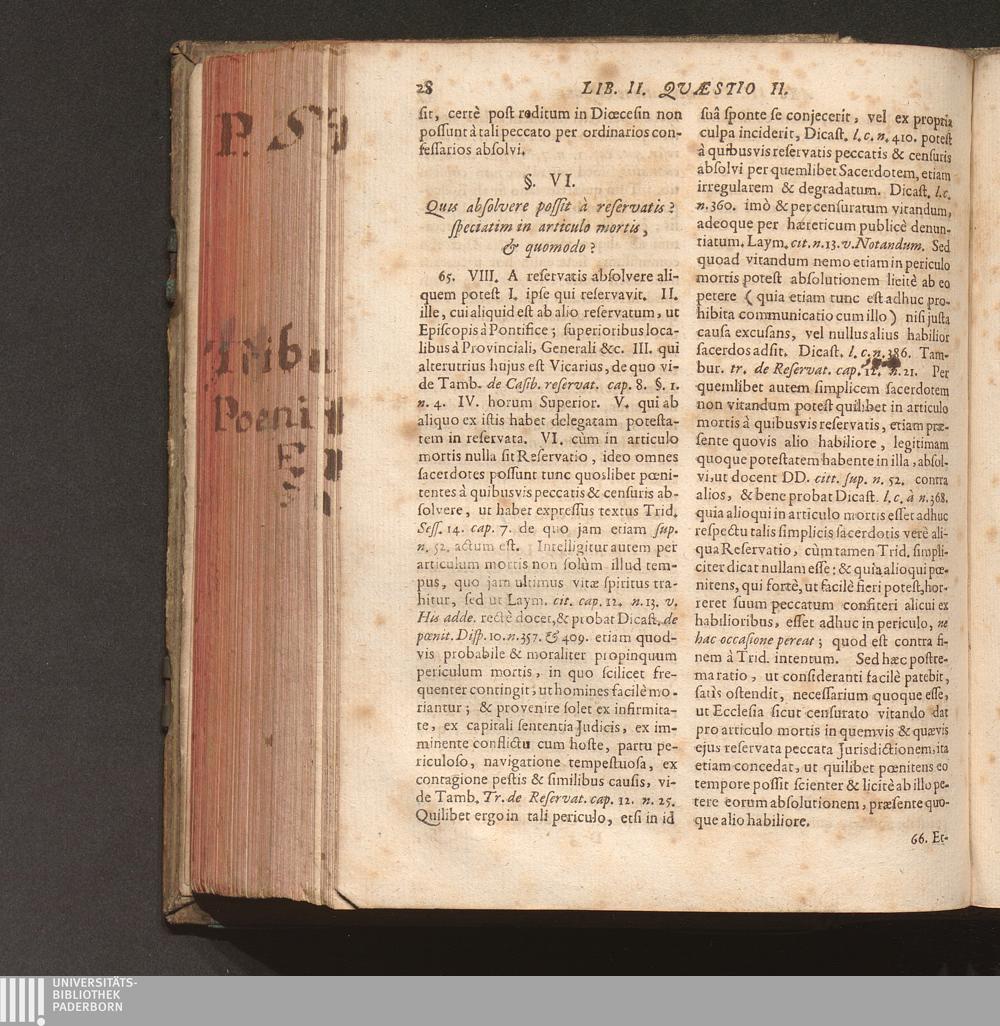 28 LIB. II. QVÆSTIO II.
sit, certè post reditum in Diœcesin non
possunt à tali peccato per ordinarios con-
fessarios absolvi.
§. VI.
Quis absolvere possit à reservatis?
speciatim in articulo mortis,
& quomodo?
65. VIII. A reservatis absolvere ali-
quem potest I. ipse qui reservavit. II.
ille, cui aliquid est ab alio reservatum, ut
Episcopis à Pontifice; superioribus loca-
libus à Provinciali, Generali &c. III. qui
alterutrius hujus est Vicarius, de quo vi-
de Tamb. de Casib. reservat. cap. 8. §. 1.
n. 4. IV. horum Superior. V. qui ab
aliquo ex istis habet delegatam potesta-
tem in reservata. VI. cùm in articulo
mortis nulla sit Reservatio, ideo omnes
sacerdotes possunt tunc quoslibet pœni-
tentes à quibusvis peccatis & censuris ab-
solvere, ut habet expressus textus Trid.
Sess. 14. cap. 7. de quo jam etiam sup.
n. 52. actum est. Intelligitur autem per
articulum mortis non solùm illud tem-
pus, quo jam ultimus vitæ spiritus tra-
hitur, sed ut Laym. cit. cap. 12. n. 13. v.
His adde. rectè docet, & probat Dicast. de
pœnit. Disp. 10. n. 357. & 409. etiam quod-
vis probabile & moraliter propinquum
periculum mortis, in quo scilicet fre-
quenter contingit, ut homines facilè mo-
riantur; & provenire solet ex infirmita-
te, ex capitali sententia Judicis, ex im-
minente conflictu cum hoste, partu pe-
riculoso, navigatione tempestuosa, ex
contagione pestis & similibus causis, vi-
de Tamb. Tr. de Reservat. cap. 12. n. 25.
Quilibet ergo in tali periculo, etsi in id
suâ sponte se conjecerit, vel ex propria
culpa inciderit, Dicast. l. c. n. 410. potest
à quibusvis reservatis peccatis & censuris
absolvi per quemlibet Sacerdotem, etiam
irregularem & degradatum. Dicast. l. c.
n. 360. imò & per censuratum vitandum,
adeoque per hæreticum publicè denun-
tiatum. Laym. cit. n. 13. v. Notandum. Sed
quoad vitandum nemo etiam in periculo
mortis potest absolutionem licitè ab eo
petere (quia etiam tunc est adhuc pro-
hibita communicatio cum illo) nisi justa
causa excusans, vel nullus alius habilior
sacerdos adsit. Dicast. l. c. n. 386. Tam-
bur. tr. de Reservat. cap. 12. n. 21. Per
quemlibet autem simplicem sacerdotem
non vitandum potest quilibet in articulo
mortis à quibusvis reservatis, etiam præ-
sente quovis alio habiliore, legitimam
quoque potestatem habente in illa, absol-
vi, ut docent DD. citt. sup. n. 52. contra
alios, & bene probat Dicast. l. c. à n. 368.
quia alioqui in articulo mortis esset adhuc
respectu talis simplicis sacerdotis verè ali-
qua Reservatio, cùm tamen Trid. simpli-
citer dicat nullam esse: & quia alioqui pœ-
nitens, qui fortè, ut facilè fieri potest, hor-
reret suum peccatum confiteri alicui ex
habilioribus, esset adhuc in periculo, ne
hac occasione pereat; quod est contra fi-
nem à Trid. intentum. Sed hæc postre-
ma ratio, ut consideranti facilè patebit,
satis ostendit, necessarium quoque esse,
ut Ecclesia sicut censurato vitando dat
pro articulo mortis in quemvis & quævis
ejus reservata peccata Jurisdictionem, ita
etiam concedat, ut quilibet pœnitens eo
tempore possit scienter & licitè ab illo pe-
tere eorum absolutionem, præsente quo-
que alio habiliore.
66. Et-
P.
Tribu
Poeni
UNIVERSITÄTS-
BIBLIOTHEK
PADERBORN